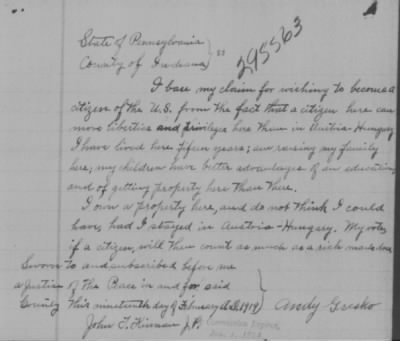 State of Pennsylvania } SS
County of Indiana
295563
I base my claim for wishing to become a
citizen of the U.S. from the fact that a citizen here can
more liberties and privileges here than in Austria-Hungary
I have lived here fifteen years; am raising my family
here; my children have better advantages of an education
and of getting property here than there.
I own a property here, and do not think I could
have, had I stayed in Austria-Hungary. My vote,
if a citizen, will then count as much as a rich man's does.
Sworn to and subscribed before me
a Justice of the Peace in and for said
County this nineteenth day of February A.D. 1919 } Andy Gresko
John T. J.P. Commission Expires